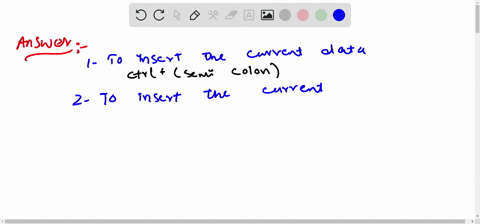 Answer:-
1- To insert the current data
ctrl + (semi colon)
2- To insert the current